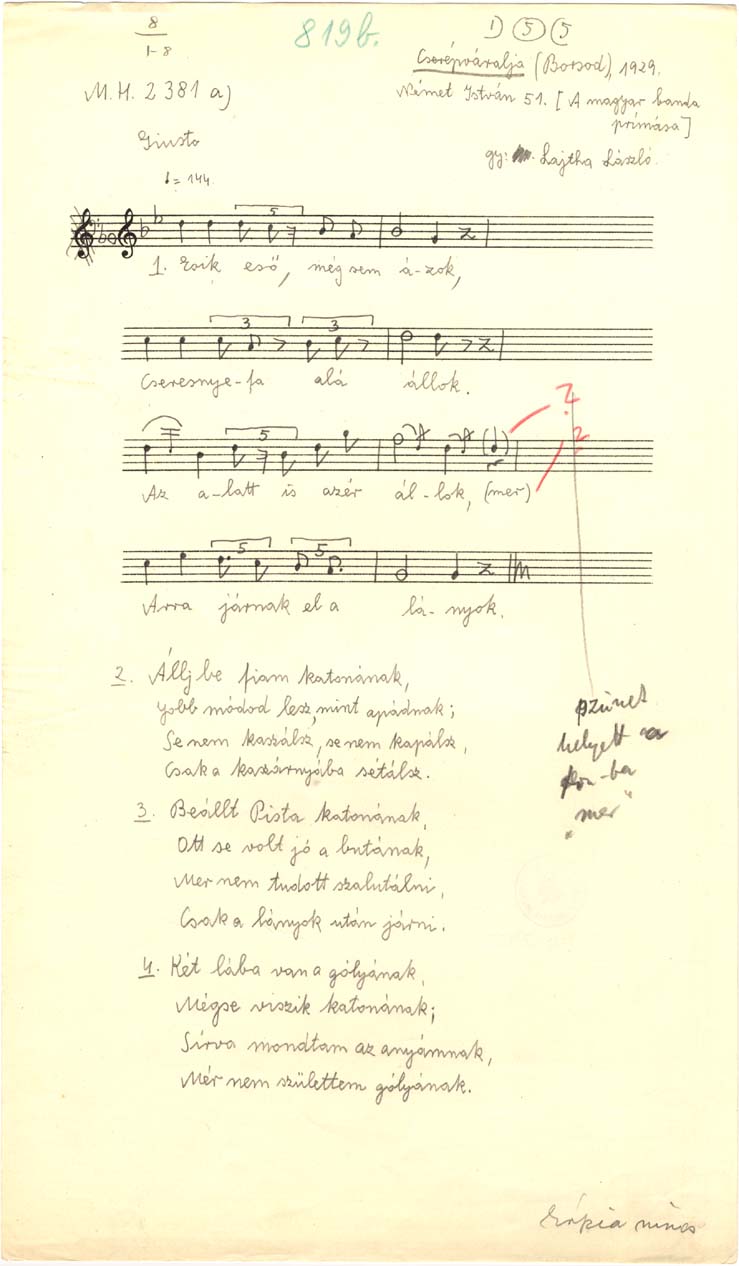 8
1-8
819b.
1) 5 5
Cserépváralja (Borsod), 1929.
M.H. 2381 a)
Német István 51. [A magyar banda
prímása]
Giusto
gy: Lajtha László.
= 144
5
1. Esik eső, mégsem á-zok,
3 3
Cseresnye-fa alá állok.
? ?
5
Az a-latt is azér ál-lok, (mer)
5 5
Arra járnak el a lá-nyok.
2. Állj be fiam katonának,
Jobb módod lesz, mint apádnak;
Se nem kaszálsz, se nem kapálsz,
Csak a kaszárnyába sétálsz.
szünet
helyett a
-ba
"mer"
3. Beállt Pista katonának,
Ott se volt jó a butának,
Mer nem tudott szalutálni,
Csak a lányok után járni.
4. Két lába van a gólyának,
Mégse viszik katonának;
Sírva mondtam az anyámnak,
Mér nem születtem gólyának.
kópia nincs